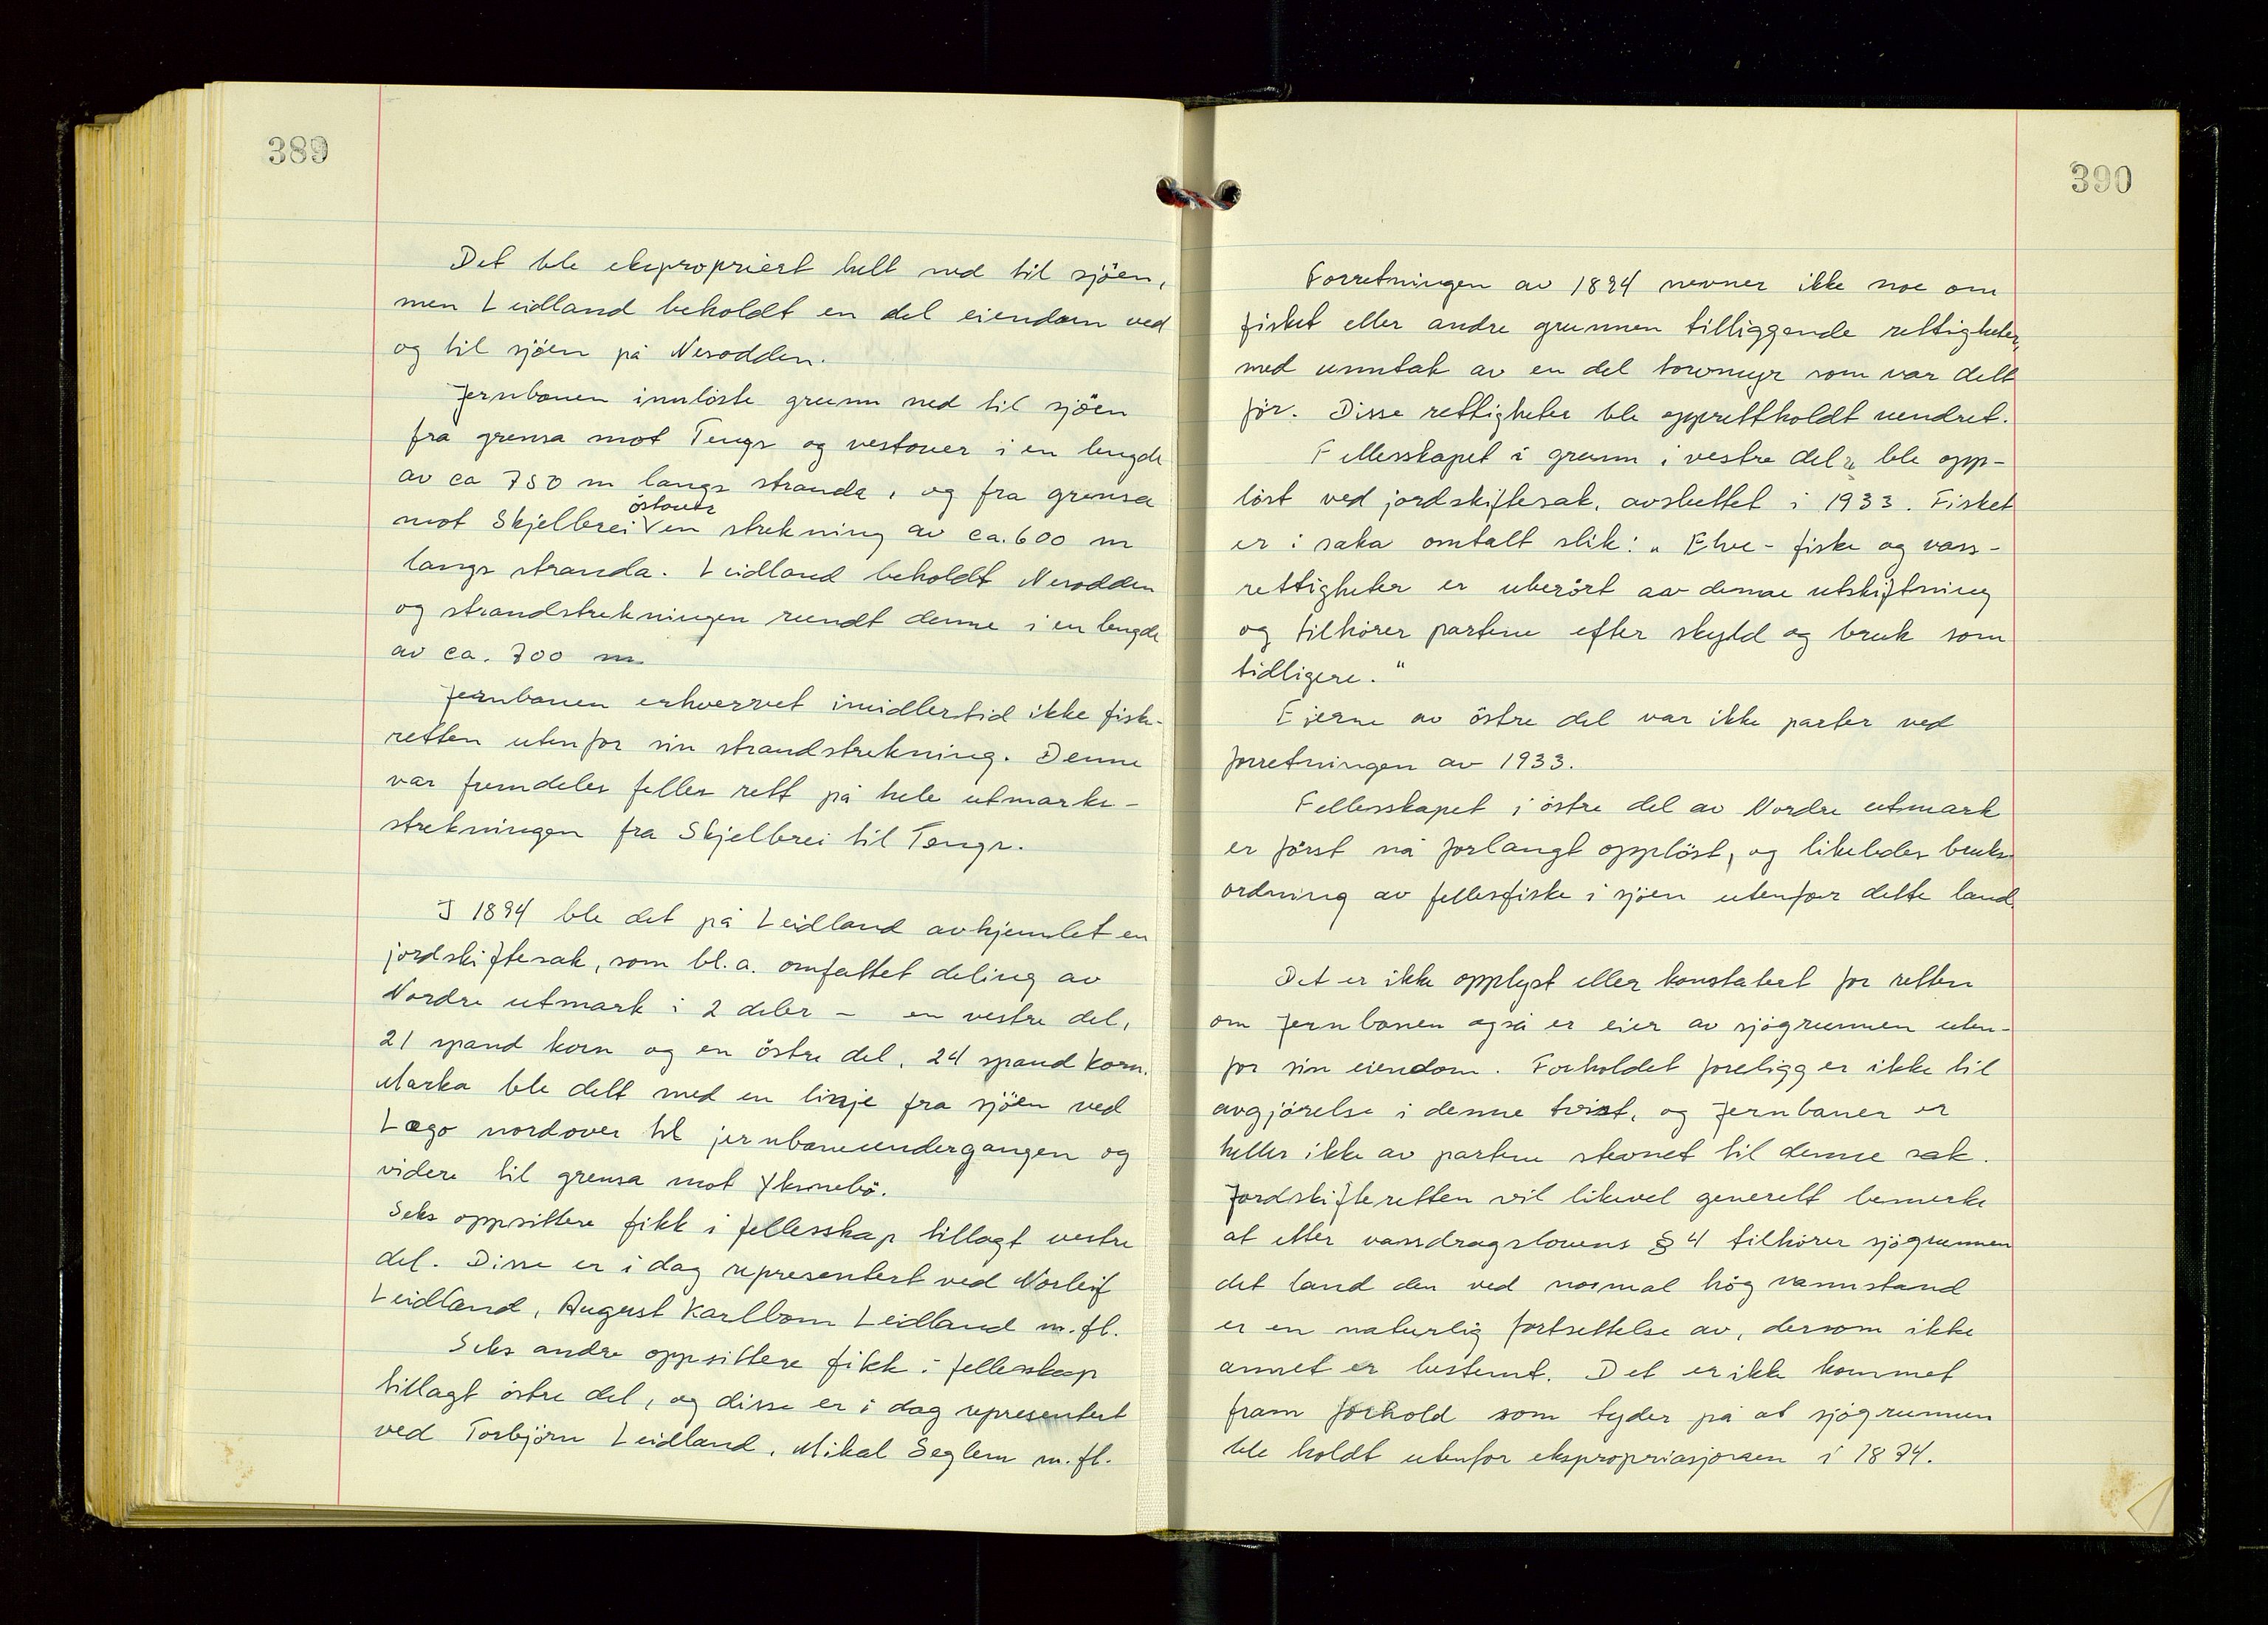 389
Det ble ekspropriert helt ned til sjöen,
men Leidland beholdt en del eiendom ved
og til sjöen på Nesodden.
Jernbanen innlöste grunn ned til sjöen
fra grensa mot Tengs og vestover i en lengde
av ca 750 m langs stranda, og fra grensa
östover
mot Skjelbrei V en strekning av ca. 600 m
langs stranda. Leidland beholdt Nesodden
og strandstrekningen rundt denne i en lengde
av ca. 700 m
Jernbanen erhvervet imidlertid ikke fiske-
retten utenfor sin strandstrekning. Denne
var fremdeles felles rett på hele utmarks-
strekningen fra Skjelbrei til Tengs.
I 1894 ble det på Leidland avhjemlet en
jordskiftesak, som bl.a. omfattet deling av
Nordre utmark i 2 deler - en vestre del,
21 spand korn og en östre del, 24 spand korn.
Marka ble delt med en linje fra sjöen ved
Lægo nordover til jernbaneundergangen og
videre til grensa mot Yksnebö.
Seks oppsittere fikk i fellesskap tillagt vestre
del. Disse er i dag representert ved Norleif
Leidland, August Karlbom Leidland m.fl.
Seks andre oppsittere fikk i fellesskap
tillagt östre del, og disse er i dag representert
ved Torbjörn Leidland, Mikal Seglem m.fl.
390
Forretningen av 1894 nevner ikke noe om
fisket eller andre grunnen tilliggende rettigheter,
med unntak av en del torvmyr som var delt
för. Disse rettigheter ble opprettholdt uendret.
Fellesskapet i grunn i vestre del ble opp-
löst ved jordskiftesak, avsluttet i 1933. Fisket
er i saka omtalt slik: „ Elve- fiske og vass-
rettigheter er uberört av denne utskiftning
og tilhörer partene efter skyld og bruk som
tidligere."
Eierne av östre del var ikke parter ved
forretningen av 1933.
Fellesskapet i östre del av Nordre utmark
er först nå forlangt opplöst, og likeledes bruks-
ordning av fellesfiske i sjöen utenfor dette land.
Det er ikke opplyst eller konstatert for retten
om Jernbanen også er eier av sjögrunnen uten-
for sin eiendom. Forholdet foreligger ikke til
avgjörelse i denne tvist, og Jernbanen er
heller ikke av partene stevnet til denne sak.
Jordskifteretten vil likevel generelt bemerke
at etter vassdragslovens § 4 tilhörer sjögrunnen
det land den ved normal hög vannstand
er en naturlig fortsettelse av, dersom ikke
annet er bestemt. Det er ikke kommet
fram forhold som tyder på at sjögrunnen
ble holdt utenfor ekspropriasjonen i 1874.